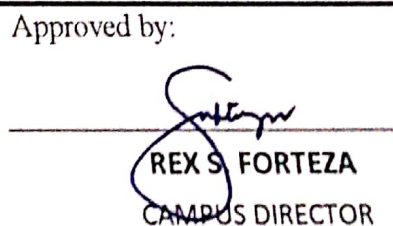 Approved by:
REX S. FORTEZA
CAMPUS DIRECTOR